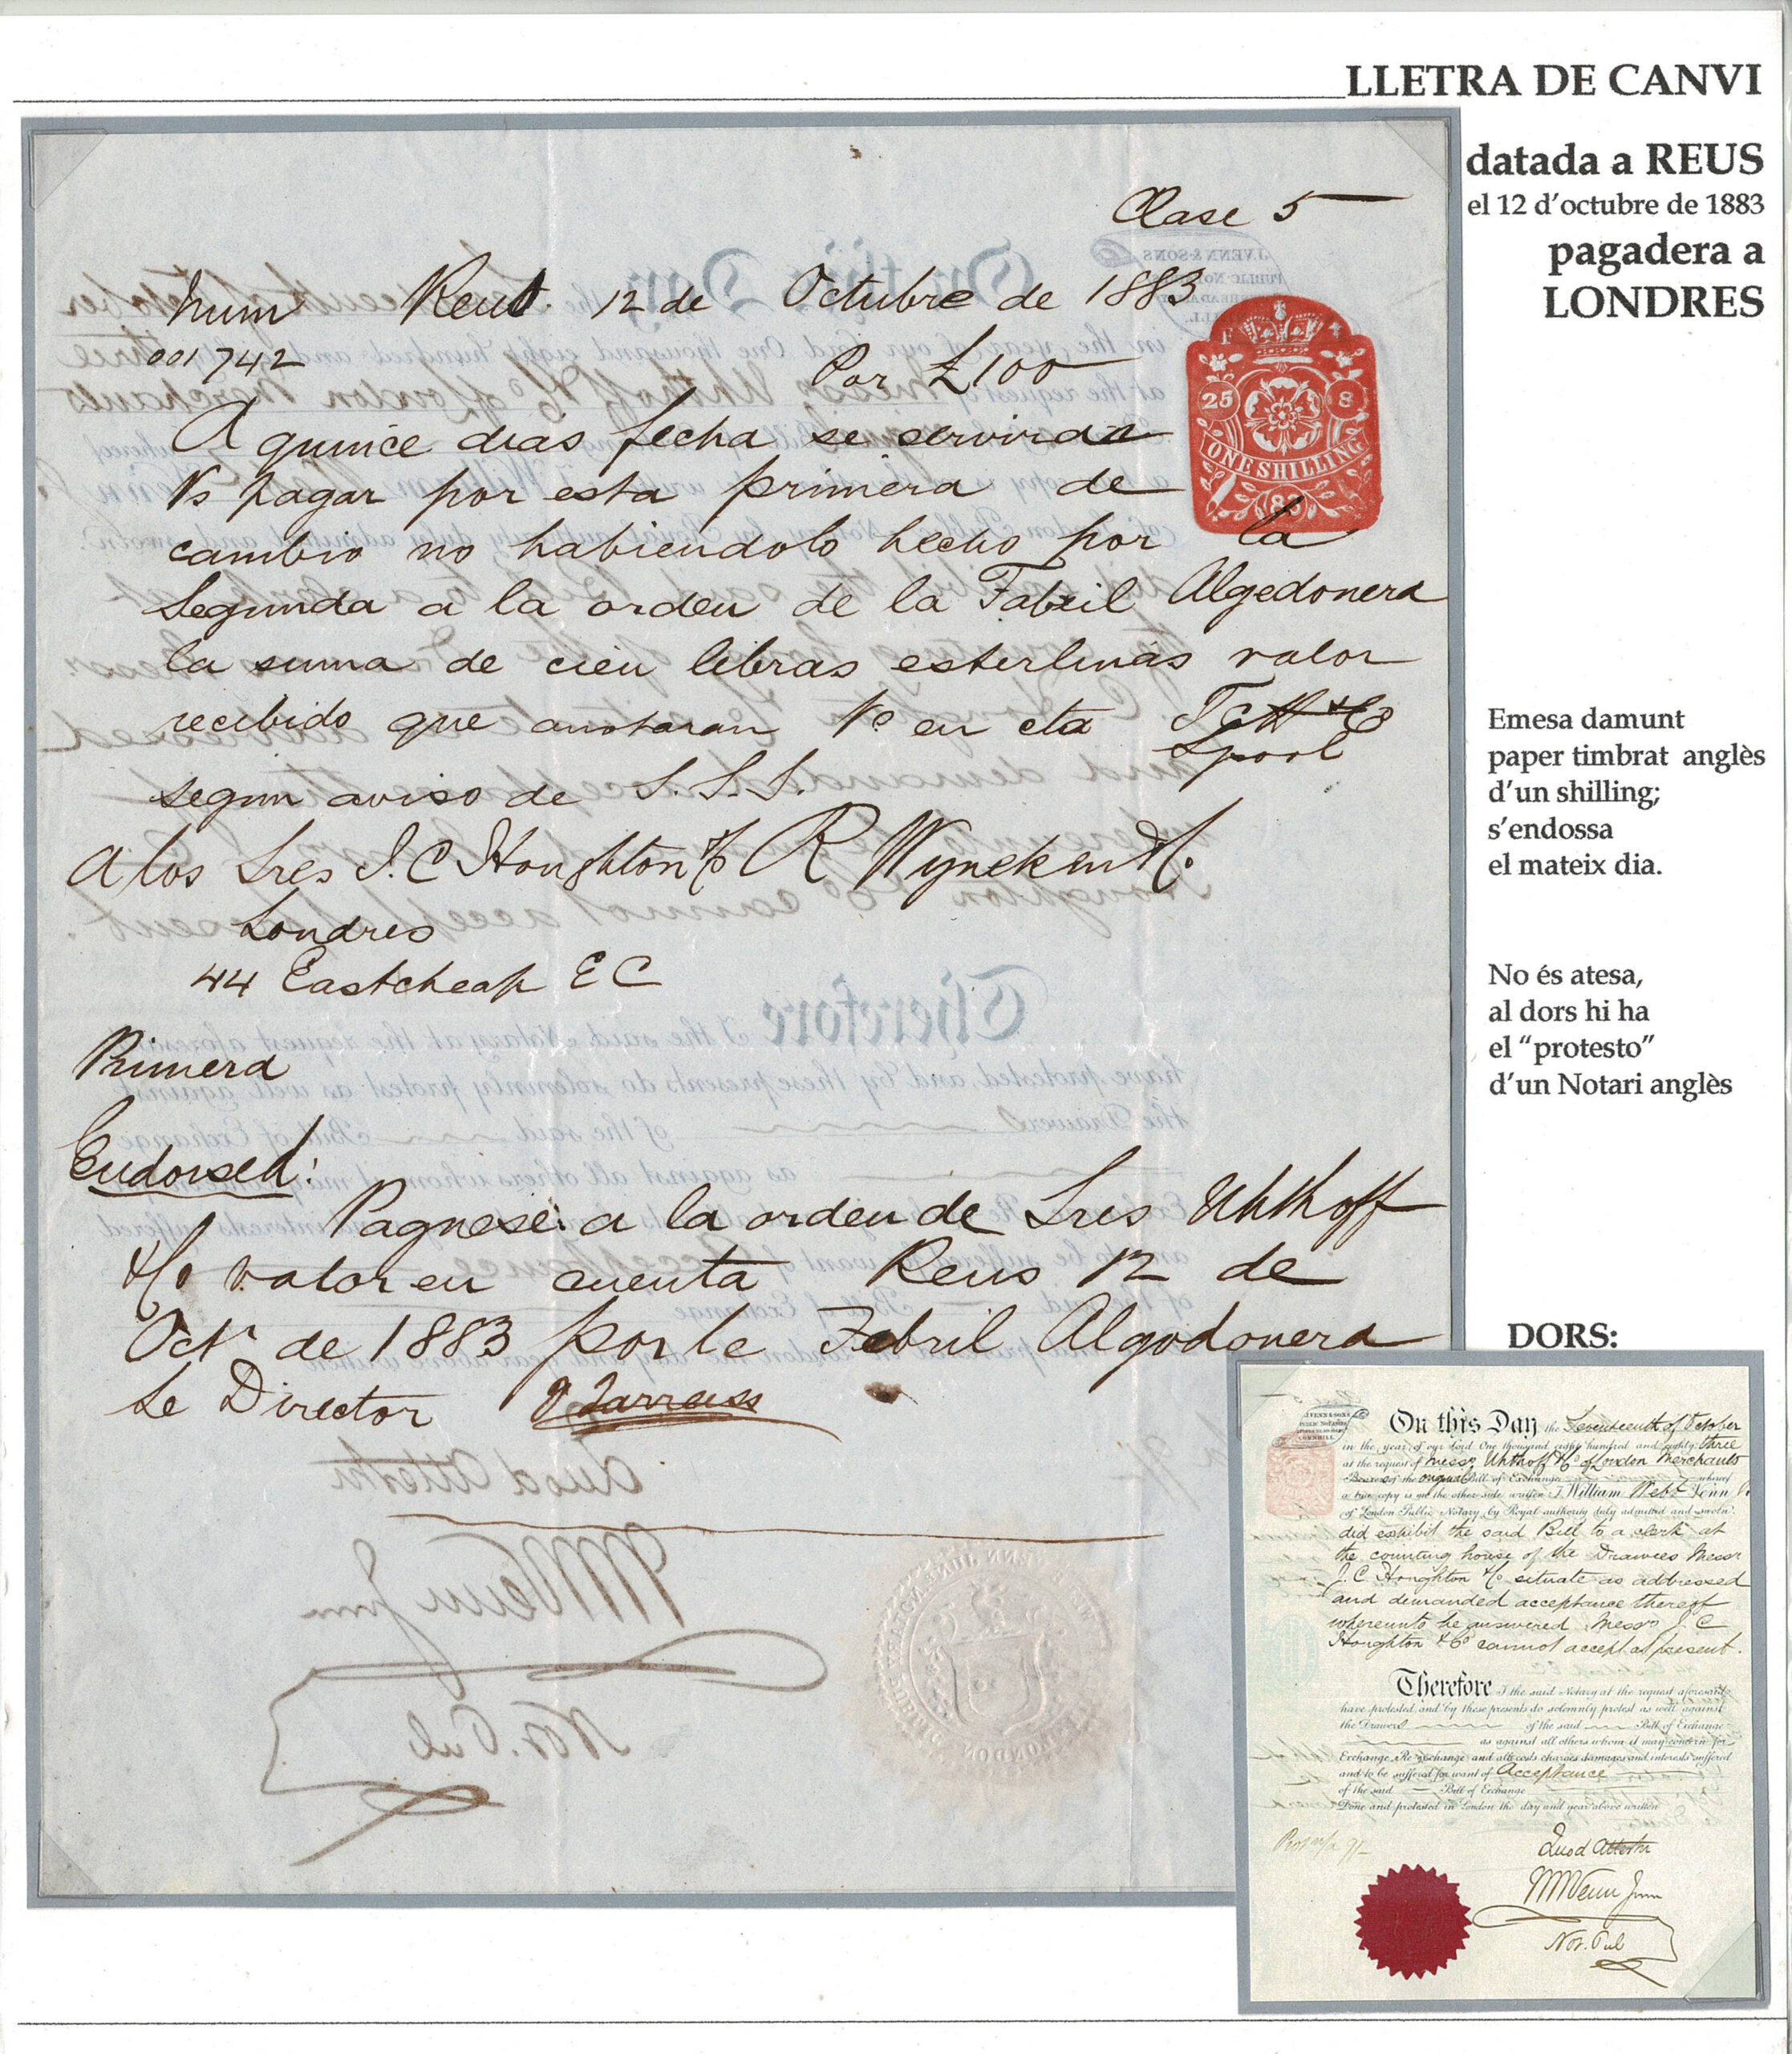 LLETRA DE CANVI
datada a REUS
el 12 d'octubre de 1883
pagadera a
LONDRES
Clase 5
Num Reus 12 de Octubre de 1883
001742 Por £100
A quince dias fecha se serviran
Vs pagar por esta primera de
cambio no habiendolo hecho por la
Segunda a la orden de la Fabril Algodonera
la suma de cien libras esterlinas valor
recibido que anotaran Vs en cta
segun aviso de S.S.S.
A los Sres J.C Houghton & Co R Wyneken & Co
Londres
44 Eastcheap E C
Primera
Endorsed:
Paguese a la orden de Sres Uhthoff
& Co valor en cuenta Reus 12 de
Octr de 1883 por le Fabril Algodonera
Le Director
25 8
ONE SHILLING
83
Emesa damunt
paper timbrat anglès
d'un shilling;
s'endossa
el mateix dia.
No és atesa,
al dors hi ha
el "protesto"
d'un Notari anglès
DORS:
J. VENN & SONS
PUBLIC NOTARIES
CORNHILL.
On this Day the Seventeenth of October
in the year of our Lord One thousand eight hundred and eighty three
at the request of Messrs Uhthoff & Co of London Merchants
Bearers of the original Bill of Exchange whereof
a true copy is on the other side written I William Webb Venn Jr
of London Public Notary by Royal authority duly admitted and sworn
did exhibit the said Bill to a clerk at
the counting house of the Drawees Messrs
J. C. Houghton & Co situate as addressed
and demanded acceptance thereof
whereunto he answered Messrs J. C
Houghton & Co cannot accept at present.
Therefore I the said Notary at the request aforesaid
have protested and by these presents do solemnly protest as well against
the Drawers of the said Bill of Exchange
as against all others whom it may concern for
Exchange, Re-exchange and all costs charges damages and interests suffered
and to be suffered for want of Acceptance
of the said Bill of Exchange
Done and protested in London the day and year above written
Quod Attestor
WWVenn Junr
Not. Pub